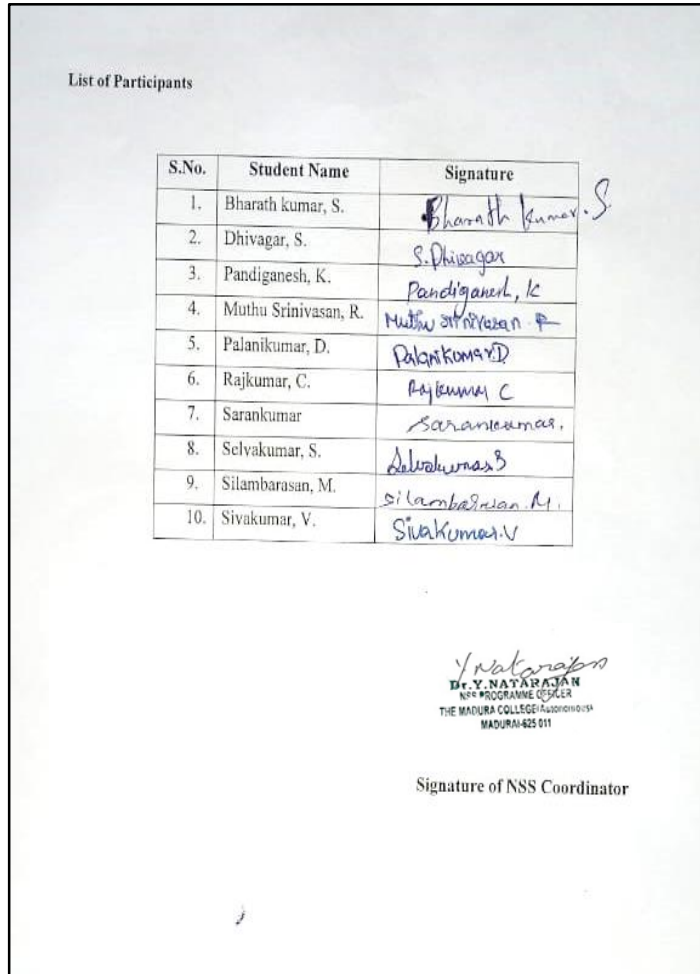 List of Participants
S.No. Student Name Signature
1. Bharath kumar, S. Bharath kumar. S
2. Dhivagar, S. S. Dhivagar
3. Pandiganesh, K. Pandiganesh, K
4. Muthu Srinivasan, R. Muthu Srinivasan. R
5. Palanikumar, D. PalaniKumar.D
6. Rajkumar, C. Rajkumar C
7. Sarankumar Sarankumar.
8. Selvakumar, S. Selvakumar.S
9. Silambarasan, M. Silambarasan. M.
10. Sivakumar, V. SivaKumar.V
Y Natarajan
Dr.Y.NATARAJAN
NSS PROGRAMME OFFICER
THE MADURA COLLEGE (Autonomous)
MADURAI-625 011
Signature of NSS Coordinator